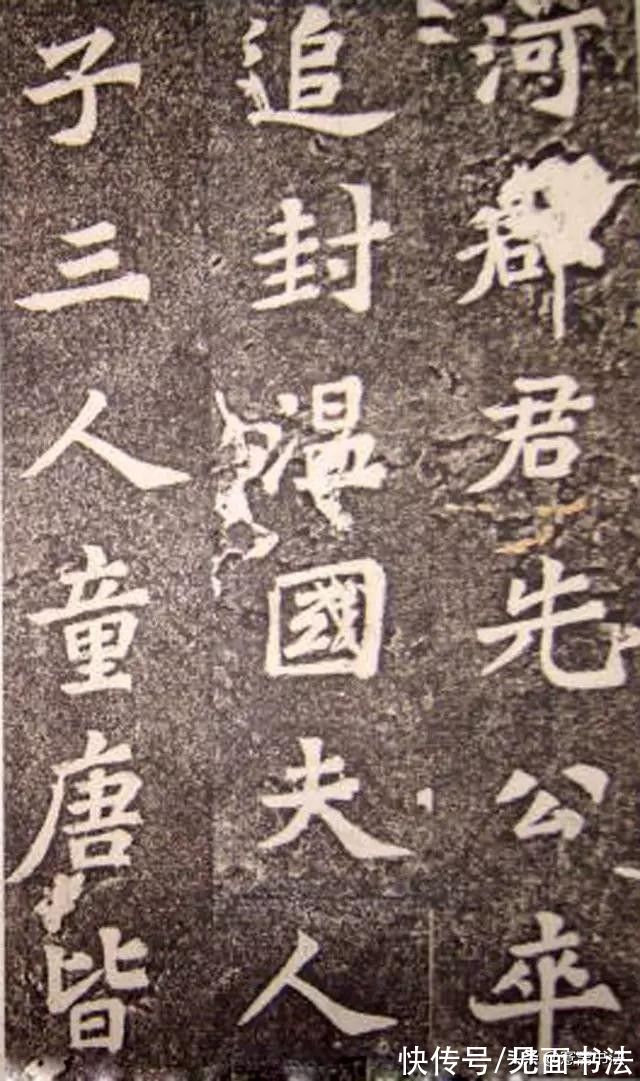 河郡君先公卒
追封温國夫人
子三人童唐皆
快传号/见面书法